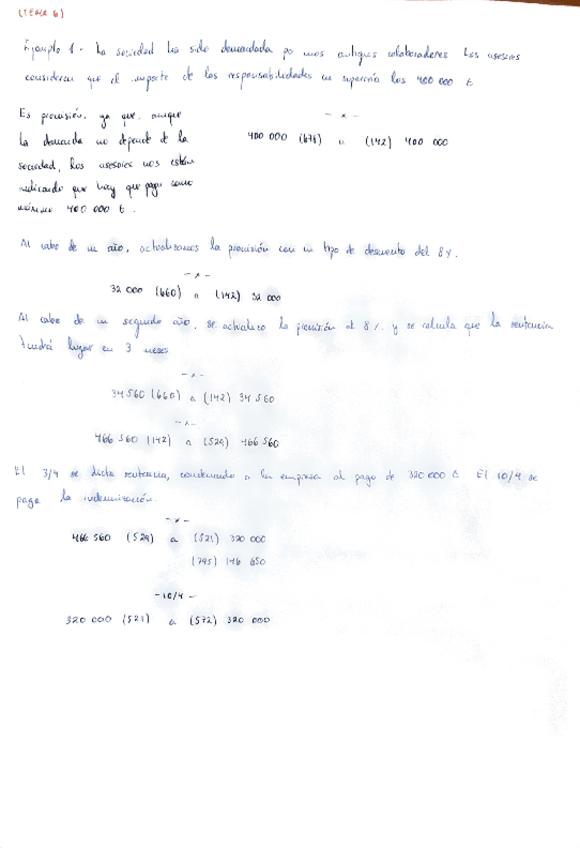 (TEMA 6)
Ejemplo 1.- La sociedad ha sido demandada por unos antiguos colaboradores. Los asesores
consideran que el importe de las responsabilidades no superaría los 400 000 €
Es provisión, ya que, aunque
la demanda no depende de la
sociedad, los asesores nos están
indicando que hay que pagar como
máximo 400 000 €.
- x -
400 000 (678) a (142) 400 000
Al cabo de un año, actualizamos la provisión con un tipo de descuento del 8%.
- x -
32 000 (660) a (142) 32 000
Al cabo de un segundo año, se actualiza la provisión al 8% y se calcula que la sentencia
tendrá lugar en 3 meses
- x -
34 560 (660) a (142) 34 560
- x -
466 560 (142) a (529) 466 560
El 3/4 se dicta sentencia, condenando a la empresa al pago de 320 000 €. El 10/4 se
paga la indemnización.
- x -
466 560 (529) a (521) 320 000
(795) 146 650
- 10/4 -
320 000 (521) a (572) 320 000